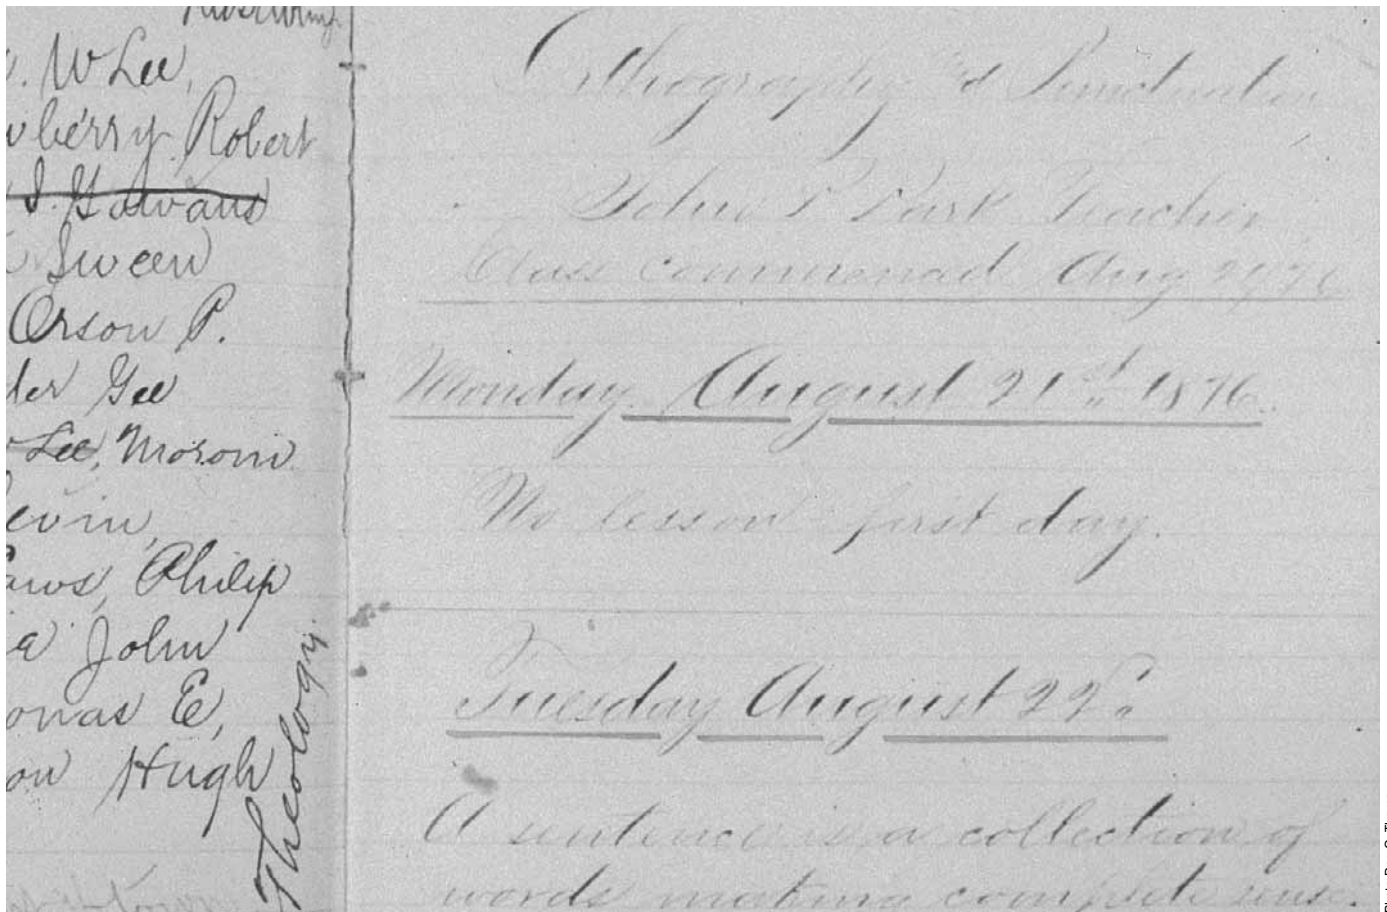 W Lee,
berry Robert
Sween
Orson P.
Gee
Lee, Moroni
evin,
Philip
John
onas E,
on Hugh
Theology.
Orthography & Punctuation
John R Park Teacher
Class commenced Aug
Monday August 21st 1876.
No lesson first day.
Tuesday August 22d
A sentence is a collection of
words making complete sense.